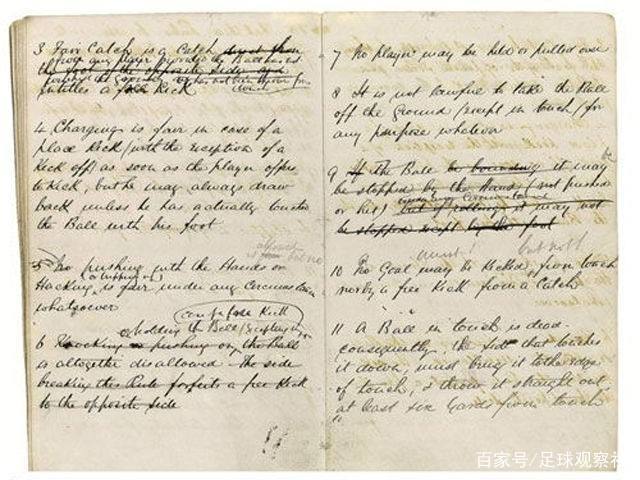 3 Fair Catch is a Catch direct from
from any player provided the Ball has not
the foot of the opposite side and
touched the ground
entitles a free Kick
4 Charging is fair in case of a
place Kick (with the exception of a
Kick off) as soon as the player offers
to Kick, but he may always draw
back unless he has actually touched
the Ball with his foot
5 No pushing with the Hands or
Hacking, is fair under any Circumstances
(or tripping up)
whatsoever
holding the Ball
6 Knocking or pushing on the Ball
is altogether disallowed The side
breaking this Rule forfeits a free Kick
to the opposite side
7 No player may be held or pulled over
8 It is not lawful to take the Ball
off the Ground (except in touch) for
any purpose whatever
9 If the Ball be bounding it may
be
be stopped by the Hand (not pushed
or hit) but if rolling it may not
be stopped except by the foot
must!
but not
10 No Goal may be Kicked, from touch
nor by a free Kick from a Catch
11 A Ball in touch is dead.
consequently, the side that touches
it down, must bring it to the edge
of touch, & throw it straight out,
at least six yards from touch
百家号/足球观察社